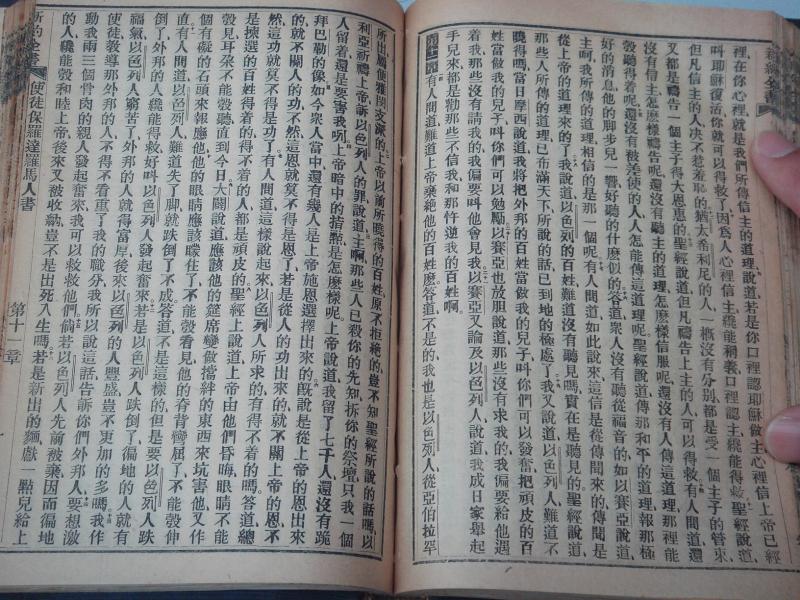 裡在你心裡就是我們所傳信主的道理說道若是你口裡認耶穌做主心裡信上帝已經
叫耶穌復活你就可以得救了因爲人心裡信主纔能稱義口裡認主纔能得救聖經說道
但凡信主的人決不惹羞恥的猶太希利尼的人一概沒有分別都是受一個主子的管束
又都是禱告一個主子得大恩惠的聖經說道但凡禱告上主的人可以得救
沒有信主怎麼樣禱告呢還沒有聽主的道理怎麼樣信服呢還沒有人傳這道理那裡能
彀聽得着呢還沒有被差使的人人怎能傳這道理呢聖經說道傳那和平的道理報那極
好的消息他的脚步兒一響好聽的什麼似的答道衆人沒有聽從福音的如以賽亞說道
主呵我所傳的道理相信的是那一個呢有人問道如此說來這信是從傳聞來的傳聞是
從上帝的道理來的了我說道以色列的百姓難道沒有聽見嗎實在是聽見的聖經說道
那些人所傳的道理已布滿天下所說的話已到地的極處了我又說道以色列人難道不
曉得嗎當日摩西說道我將把外邦的百姓當做我的兒子叫你們可以發奮把頑皮的百
姓當做我的兒子叫你們可以勉勵以賽亞也放胆說道那些沒有求我的我偏要給他遇
着我那些沒有請我的我偏要叫他會見我以賽亞又論及以色列人說道我成日家舉起
手兒來都是勸那些不信我和那忤逆我的百姓啊
第十一章有人問道難道上帝棄絕他的百姓麽答道不是的我也是以色列人從亞伯拉罕
所出屬便雅閔支派的上帝以前所曉得的百姓原不拒絕的豈不知聖經所說的話嗎以
利亞祈禱上帝訴以色列人的罪說道主啊那些人已殺你的先知拆你的祭壇只我一個
人留着還是要害我呢上帝暗中的指點是怎麼樣呢上帝說道我留了七千人還沒有跪
拜巴勒的像如今衆人當中還有幾人是上帝施恩選擇出來的旣說是從上帝的恩出來
的就不關人的功不然這恩就算不得是恩了若是從人的功出來的就不關上帝的恩不
然這功就算不得是功了有人問道這樣說起來以色列人所求的有得不着的嗎答道總
是揀選的百姓得着的得不着的人都是頑皮的聖經上說道上帝由他們昏晦眼睛不能
彀見耳朵不能彀聽直到今日大闢說道應該他的筵席變做擋絆的東西來坑害他又作
個有礙的石頭來報應他他的眼睛應該矇住了不能彀看見他的脊背彎屈了不能彀伸
直有人問道以色列人難道失了脚就跌倒了不成答道不是這樣的但是要以色列人跌
倒了外邦的人纔能得救好叫以色列人發起奮來若是以色列人跌倒了徧地的人就有
了福氣以色列人窮苦了外邦的人就得富厚後來以色列人豐盛豈不更加的多嗎我作
使徒教導那外邦的人不得不看重了我的職分我所以說這話告訴你們外邦人要想激
動我兩三個骨肉的親人發起奮來我可以救救他們倘若以色列人先前被棄因而徧地
的人纔能彀和睦上帝後來又被收納豈不是出死入生嗎若是新出的麵獻一點兒給上
新約全書
使徒保羅達羅馬人書
第十一章